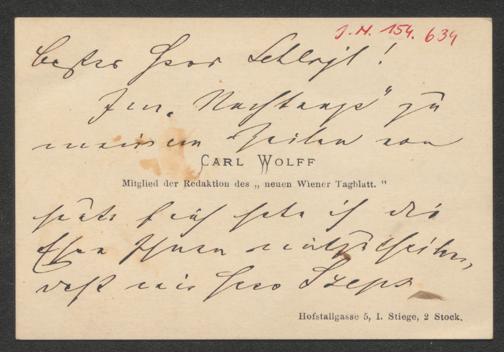 J. N. 154.634
Bester Herr Schlögl!
Im „Nachhange" zu
meinen Zeilen von
CARL WOLFF
Mitglied der Redaktion des „neuen Wiener Tagblatt."
heute früh habe ich die
Ehre Ihnen mitzutheilen,
daß mir Herr Szeps
Hofstallgasse 5, I. Stiege, 2 Stock.